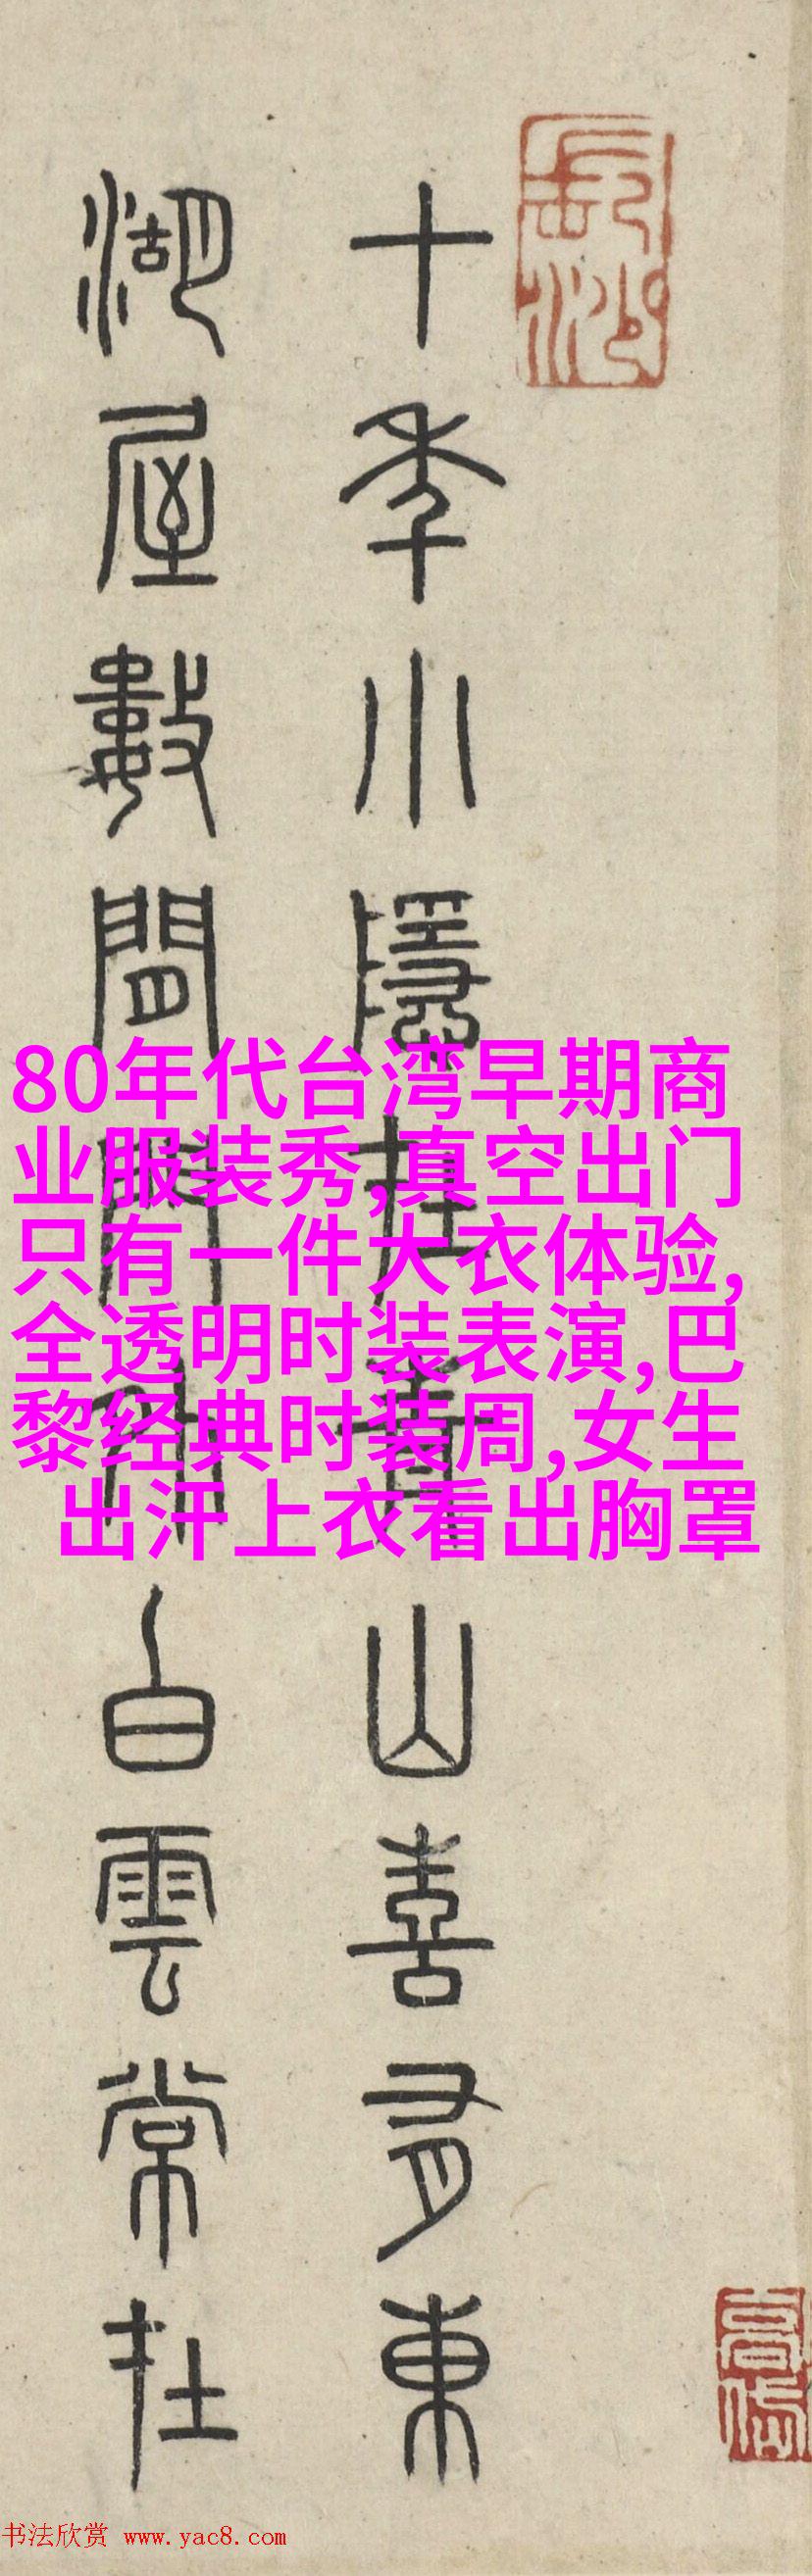 十年小隱在青山喜有東
湖屋數間門外白雲常在
80年代台湾早期商
业服装秀,真空出门
只有一件大衣体验,
全透明时装表演,巴
黎经典时装周,女生
出汗上衣看出胸罩
书法欣赏 www.yac8.com